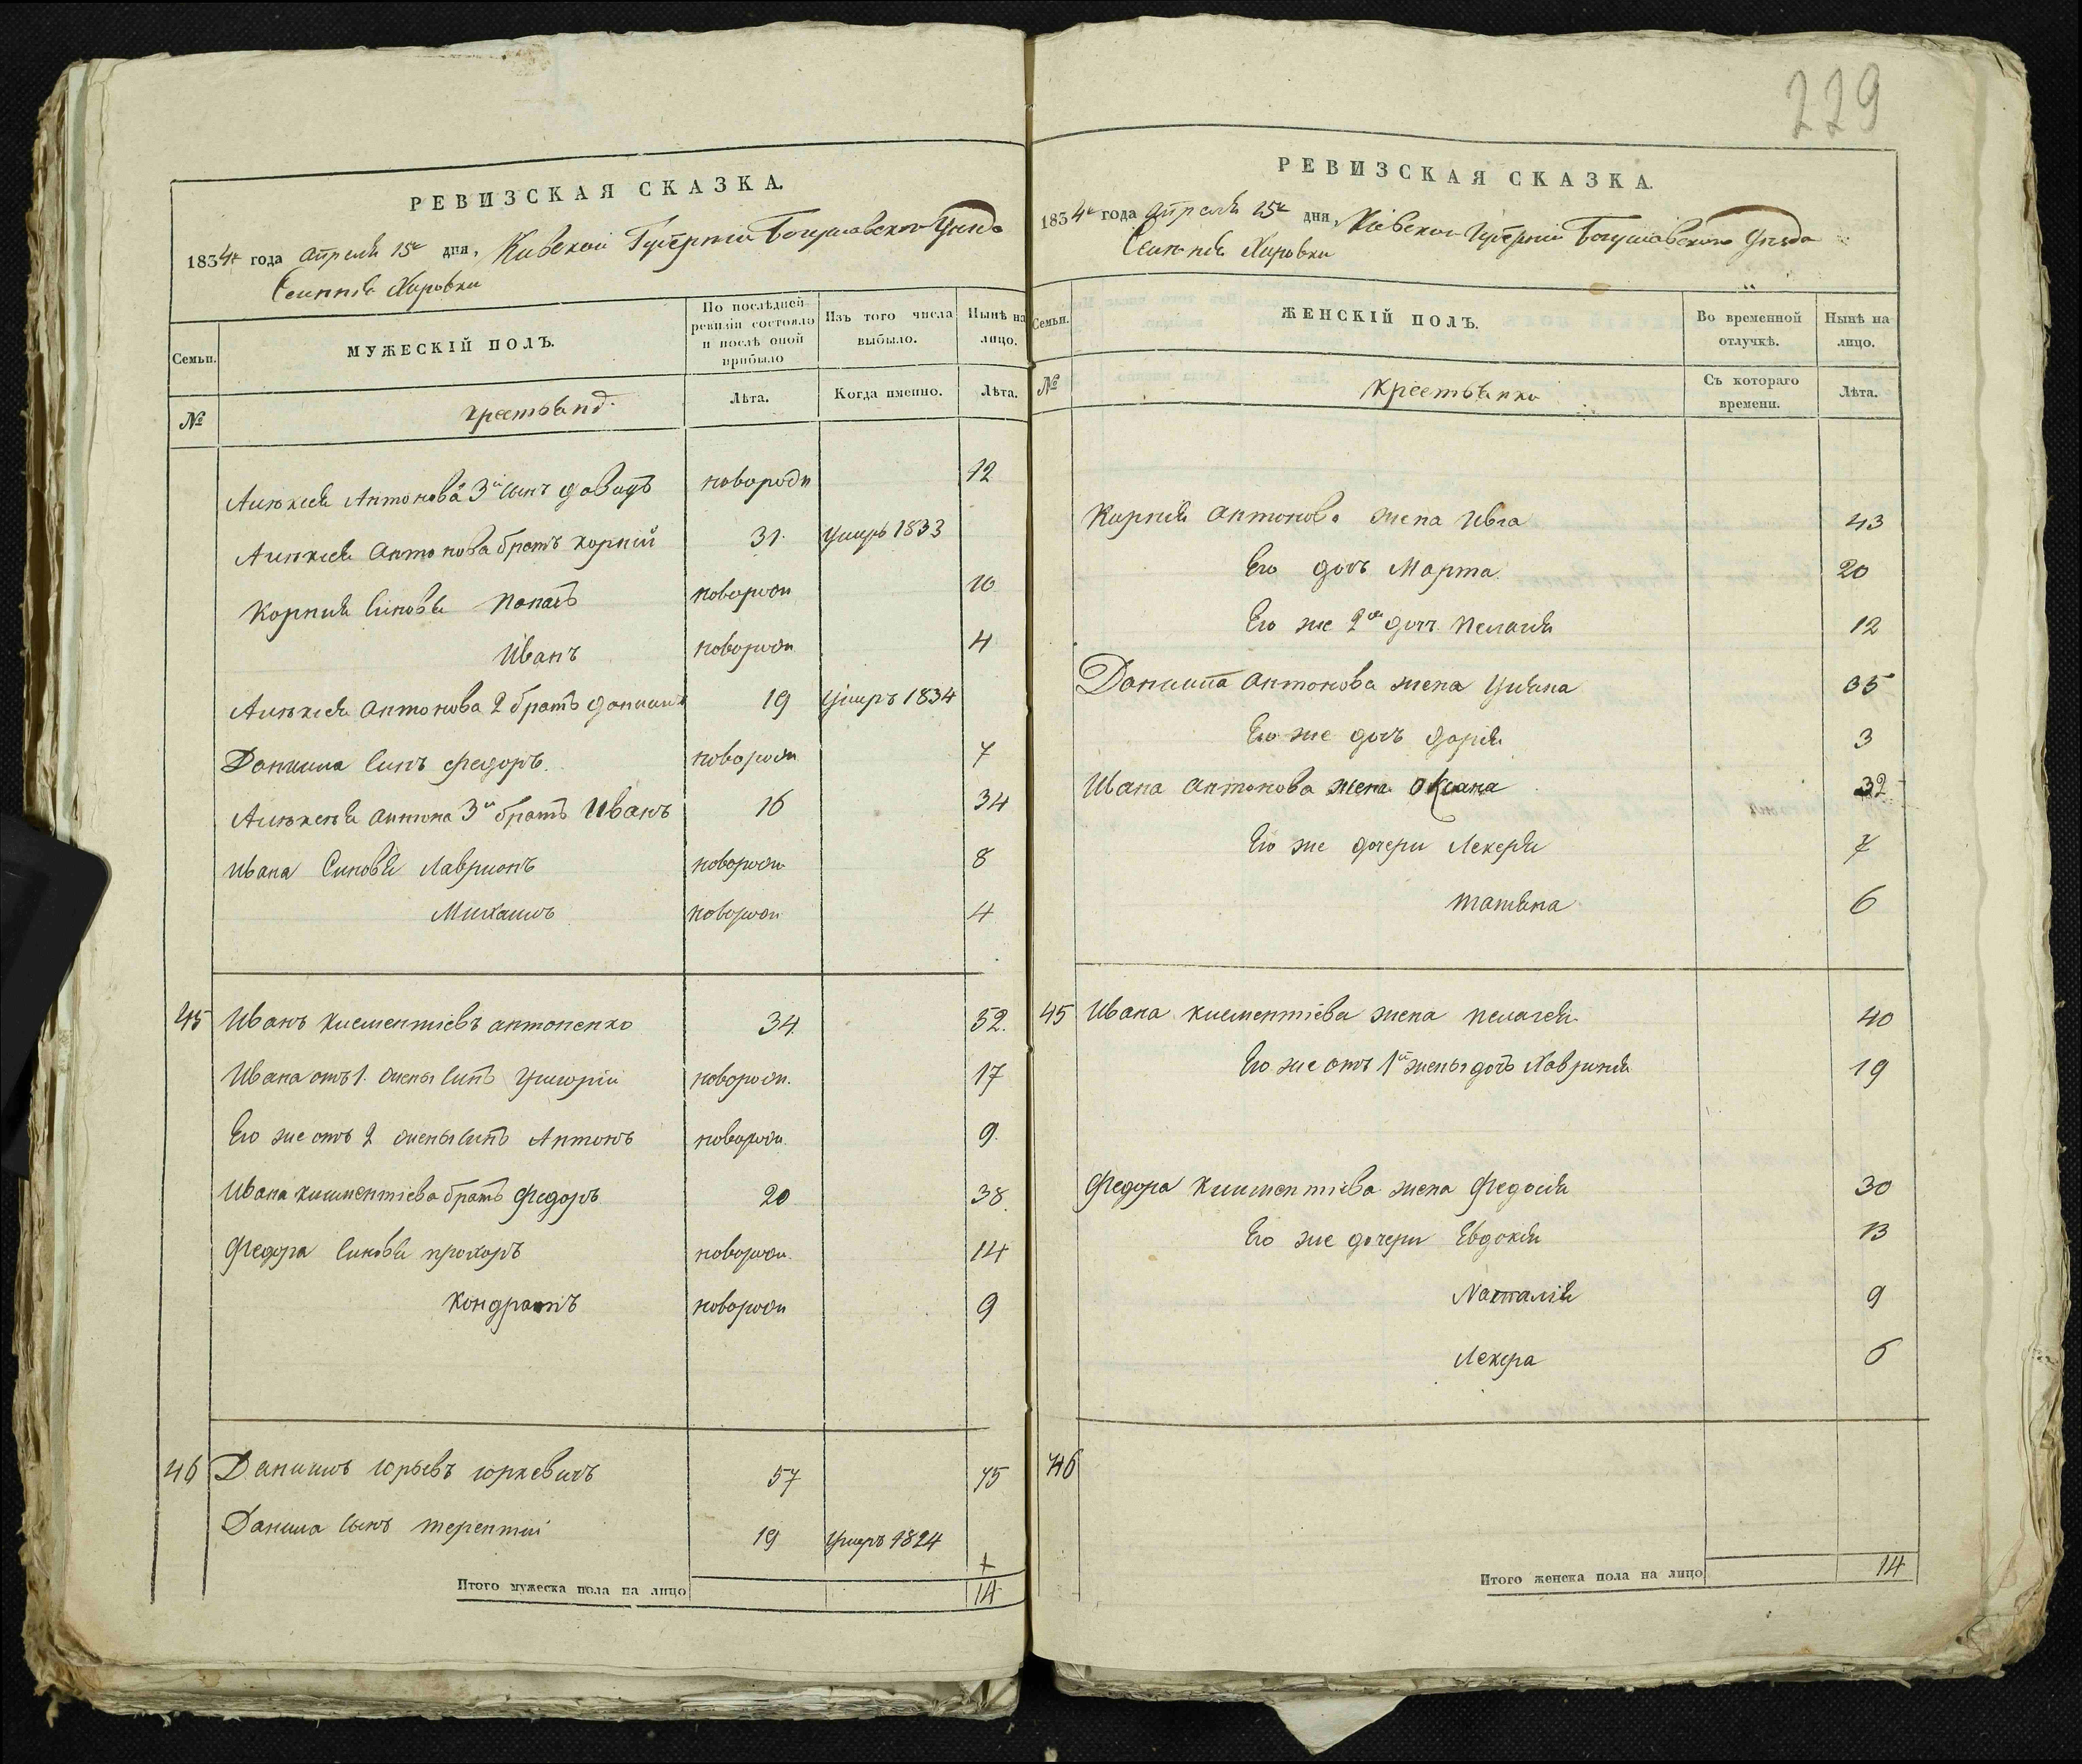 229
РЕВИЗСКАЯ СКАЗКА.
1834 года Апреля 15 дня, Киевской Губернии Богуславского Уезда
Селения Хировки
Семьи.
МУЖЕСКІЙ ПОЛЪ.
По послѣдней ревизіи состояло и послѣ оной прибыло
Изъ того числа выбыло.
Нынѣ на лицо.
№
крестьянъ
Лѣта.
Когда именно.
Лѣта.
Алексея Антонова 3й сынъ Давидъ новорожд 12
Алексея Антонова братъ Корній 31 умеръ 1833
Корнія синовья Панасъ новорож 10
Иванъ новорож 4
Алексея Антонова 2 братъ Данило 19 умеръ 1834
Данила синъ Федоръ новорож 7
Алексея Антона 3й братъ Иванъ 16 34
Ивана синовья Лаврионъ новорож 8
Михаилъ новорож 4
45 Иванъ Климентіевъ Антоненко 34 52
Ивана отъ 1 жены синъ Григорій новорож 17
Его же отъ 2 жены синъ Антонъ новорож 9
Ивана Климентіева братъ Федоръ 20 38
Федора синовья Прохоръ новорож 14
Кондратъ новорож 9
46 Данило Юрьевъ Юркевичъ 57 75
Данила сынъ Терентій 19 умеръ 1824
Итого мужеска пола на лицо 14
РЕВИЗСКАЯ СКАЗКА.
1834 года Апреля 15 дня, Кіевской Губерніи Богуславского Уезда
Селенія Хировки
Семьи.
ЖЕНСКІЙ ПОЛЪ.
Во временной отлучкѣ.
Нынѣ на лицо.
№
крестьянки
Съ котораго времени.
Лѣта.
Корнія Антонова жена Ивга 43
Его дочь Марта 20
Его же 2я дочь Пелагія 12
Данила Антонова жена Уляна 35
Его же дочь Дарія 3
Ивана Антонова жена Оксана 32
Его же дочери Лекерія 7
Татіяна 6
45 Ивана Климентіева жена Пелагея 40
Его же отъ 1й жены дочь Хавронія 19
Федора Климентіева жена Федосія 30
Его же дочери Евдокія 13
Наталія 9
Лекера 6
46
Итого женска пола на лицо 14